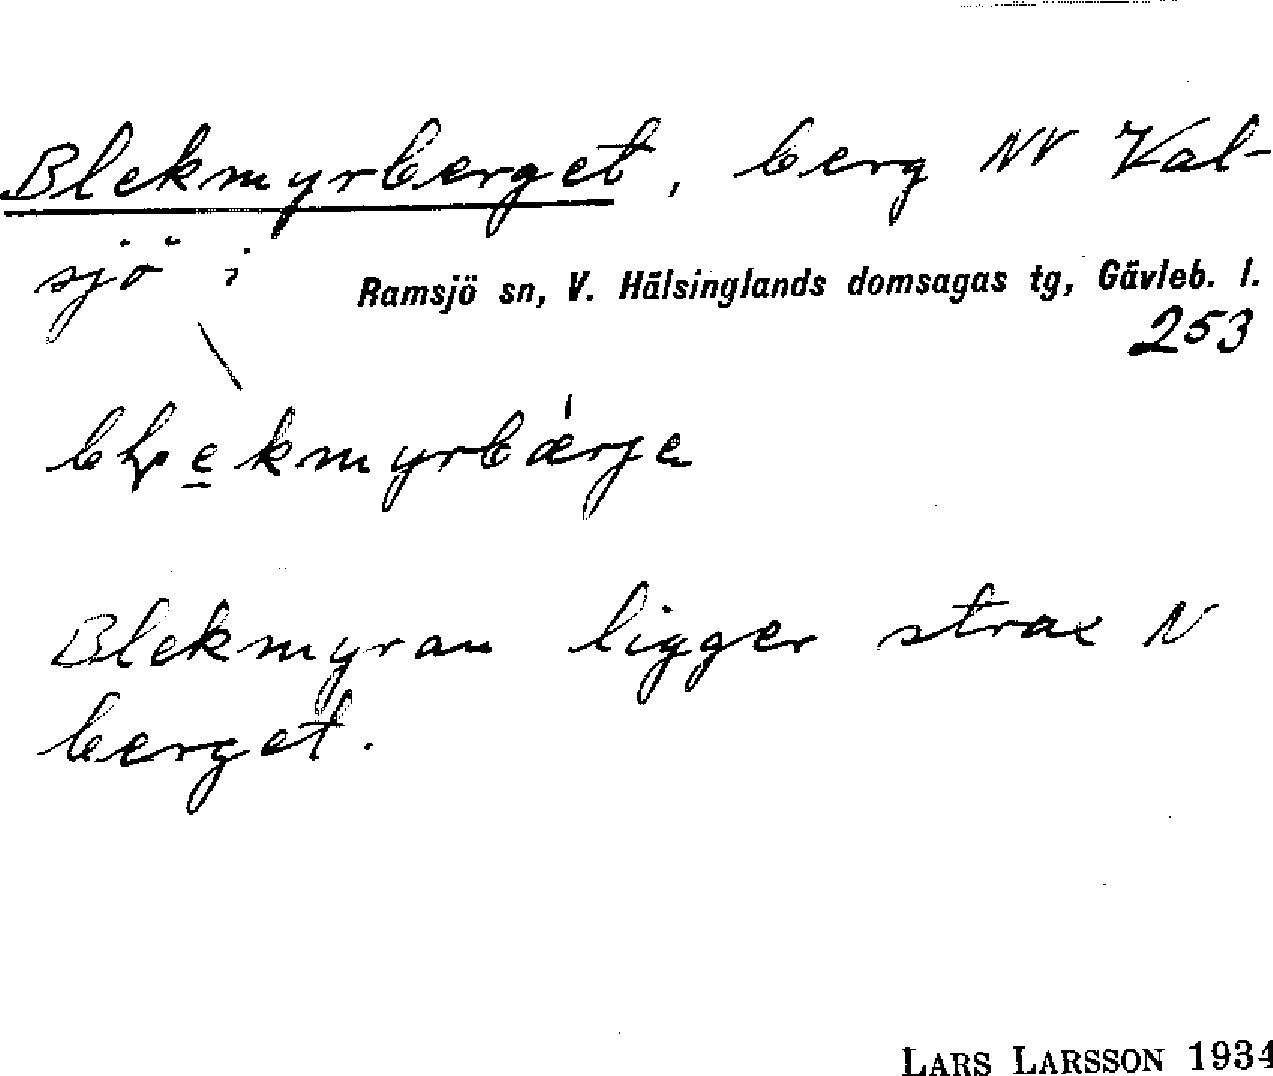 Blekmyrberget, berg NV Val-
sjö i
Ramsjö sn, V. Hälsinglands domsagas tg, Gävleb. l.
253
Blekmyran ligger strax N
berget.
LARS LARSSON 1934